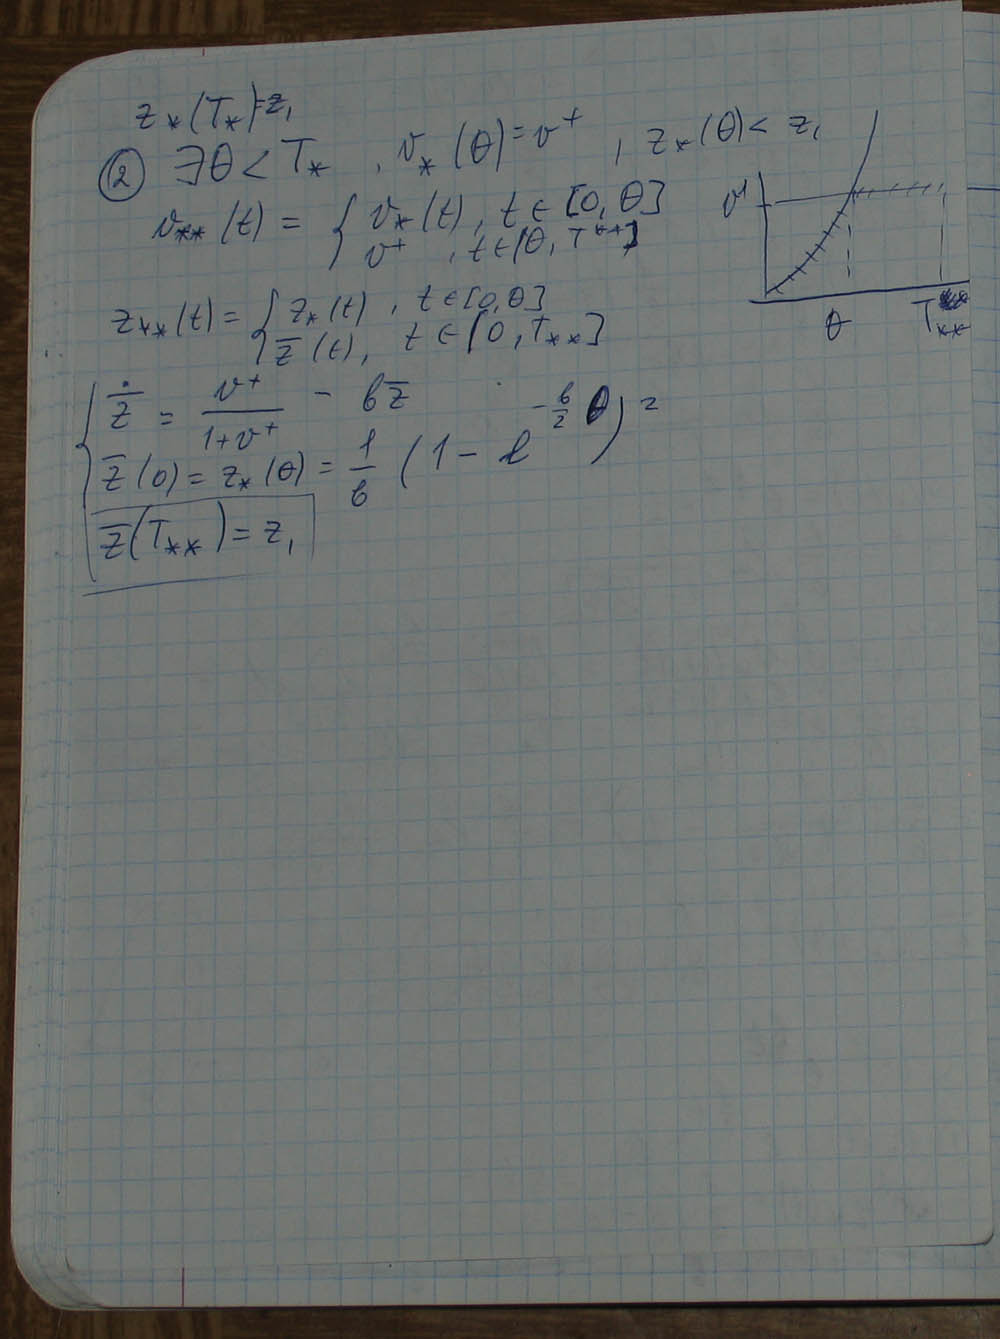 z_*(T_*)=z_1
② ∃θ < T_* , v_*(θ)=v^+ , z_*(θ) < z_1
v_{**}(t) = { v_*(t), t∈[0, θ]
v^+ , t∈[θ, T^{**}]
z_{**}(t) = { z_*(t) , t∈[0,θ]
z̄(t), t∈[0, T_{**}]
{ \dot{z̄} = \frac{v^+}{1+v^+} - bz̄
z̄(0) = z_*(θ) = \frac{1}{b} (1 - e^{-\frac{b}{2}θ})^2
z̄(T_{**}) = z_1
v^+
θ
T_{**}